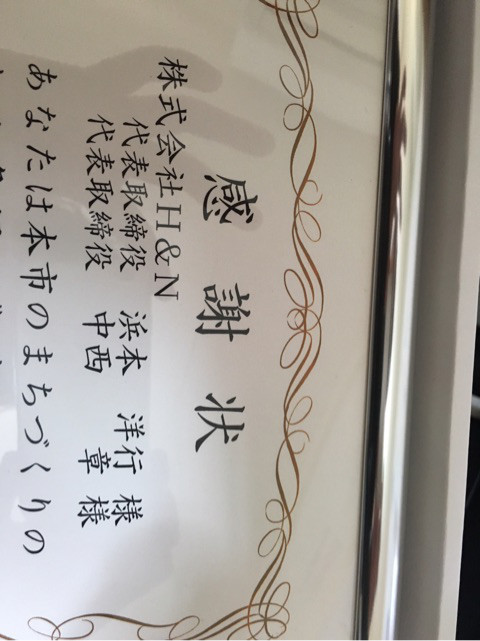 感謝状
株式会社H&N
代表取締役 浜本 洋行 様
代表取締役 中西 章 様
あなたは本市のまちづくりの